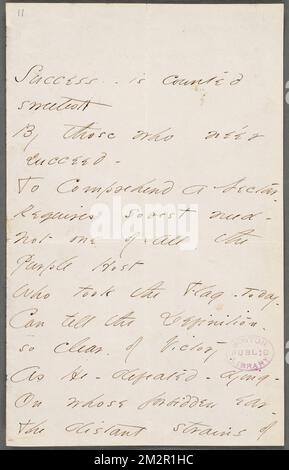 11
Success - is counted
sweetest
By those who ne'er
succeed -
To Comprehend a Nectar
Requires sorest need -
Not one of all the
Purple Host
Who took the Flag - today -
Can tell the Definition -
so clear - of Victory
As He - defeated - dying -
On whose forbidden ear -
the distant strains of
BOSTON
PUBLIC
LIBRARY
alamy
Image ID: 2M2R1HC
www.alamy.com